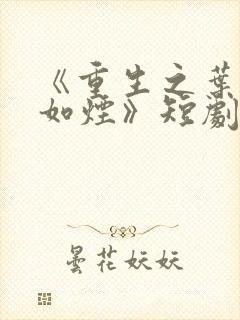 《重生之葉
如煙》短劇
曇花妖妖